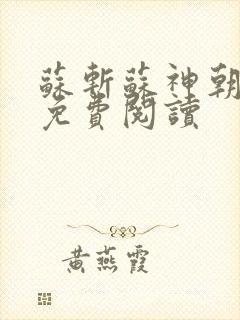 蘇斬蘇神朝
免費閱讀
黃燕霞